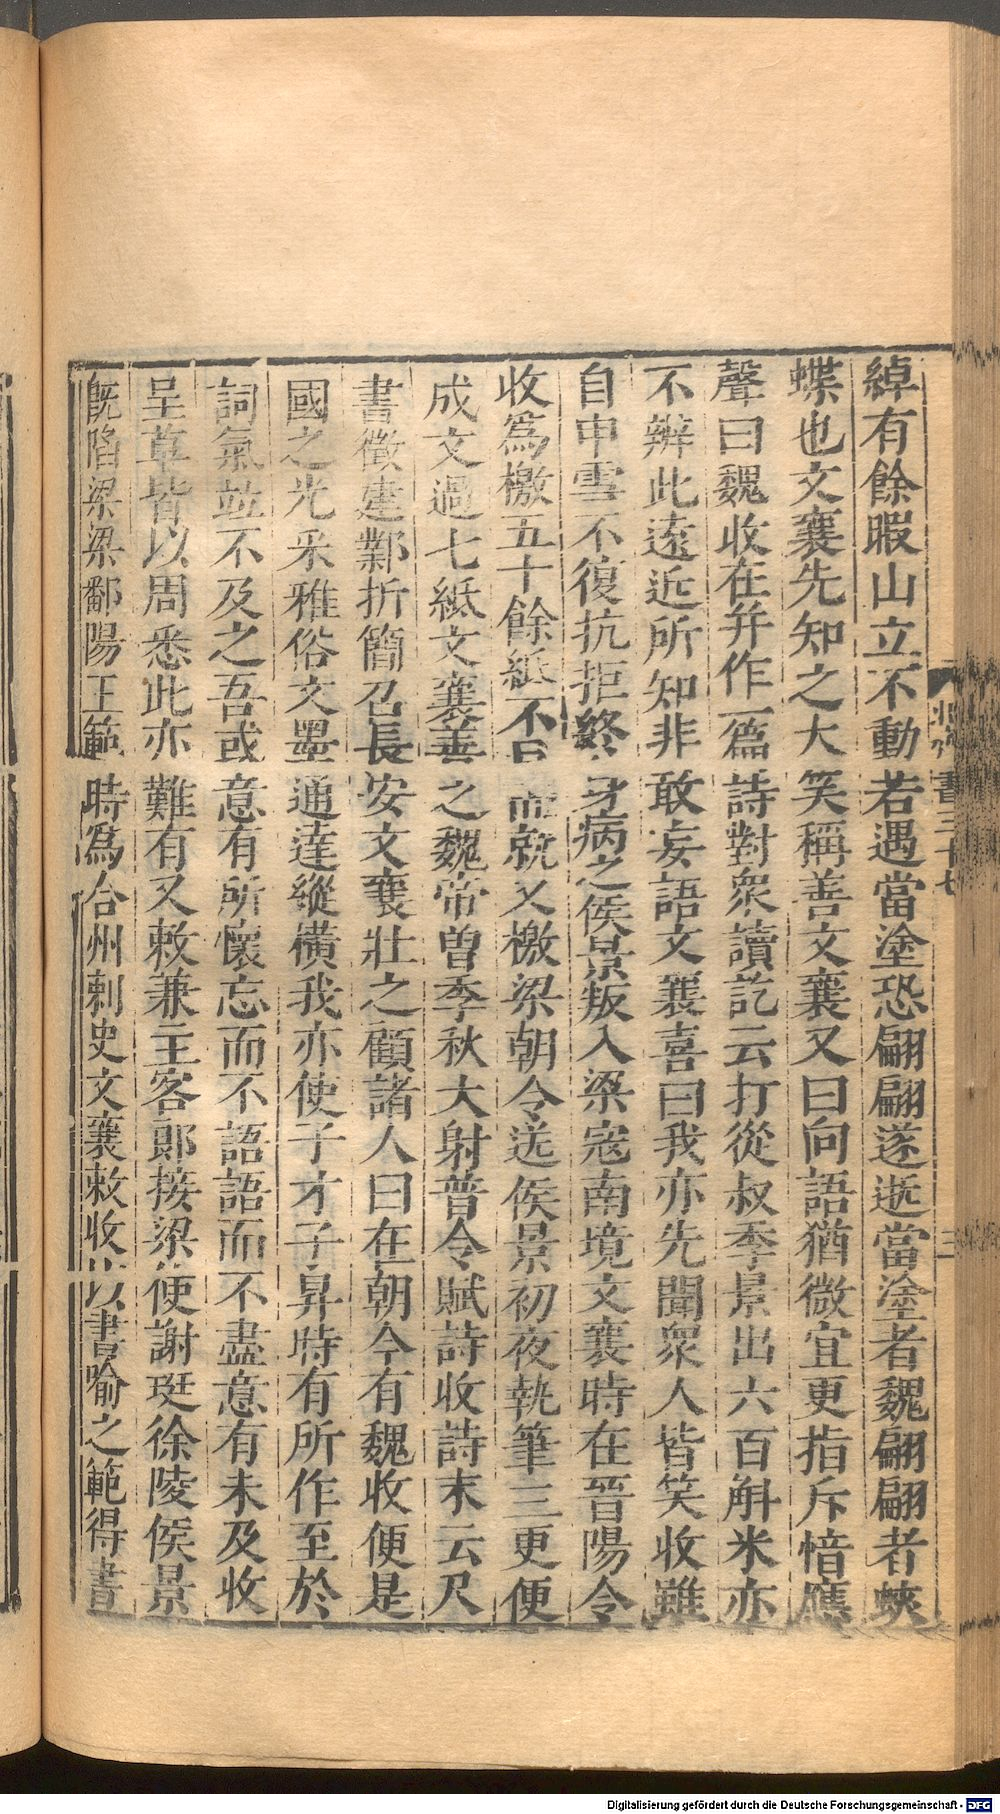 綽有餘暇山立不動若遇當塗恐翩翩遂逝當塗者魏翩翩者蛺
蝶也文襄先知之大笑稱善文襄又曰向語猶微宜更指斥愔應
聲曰魏收在并作一篇詩對衆讀訖云打從叔季景出六百斛米亦
不辨此遠近所知非敢妄語文襄喜曰我亦先聞衆人皆笑收雖
自申雪不復抗拒終身病之侯景叛入梁寇南境文襄時在晉陽令
收爲檄五十餘紙不日而就又檄梁朝令送侯景初夜執筆三更便
成文過七紙文襄善之魏帝曽季秋大射普令賦詩收詩末云尺
書徵建鄴折簡召長安文襄壯之顧諸人曰在朝今有魏收便是
國之光采雅俗文墨通達縱橫我亦使子才子昇時有所作至於
詞氣竝不及之吾或意有所懷忘而不語語而不盡意有未及收
呈草皆以周悉此亦難有又敕兼主客郎接梁使謝珽徐陵侯景
旣陷梁梁鄱陽王範時爲合州刺史文襄敕收以書喻之範得書
書三十七
三
Digitalisierung gefördert durch die Deutsche Forschungsgemeinschaft - DFG